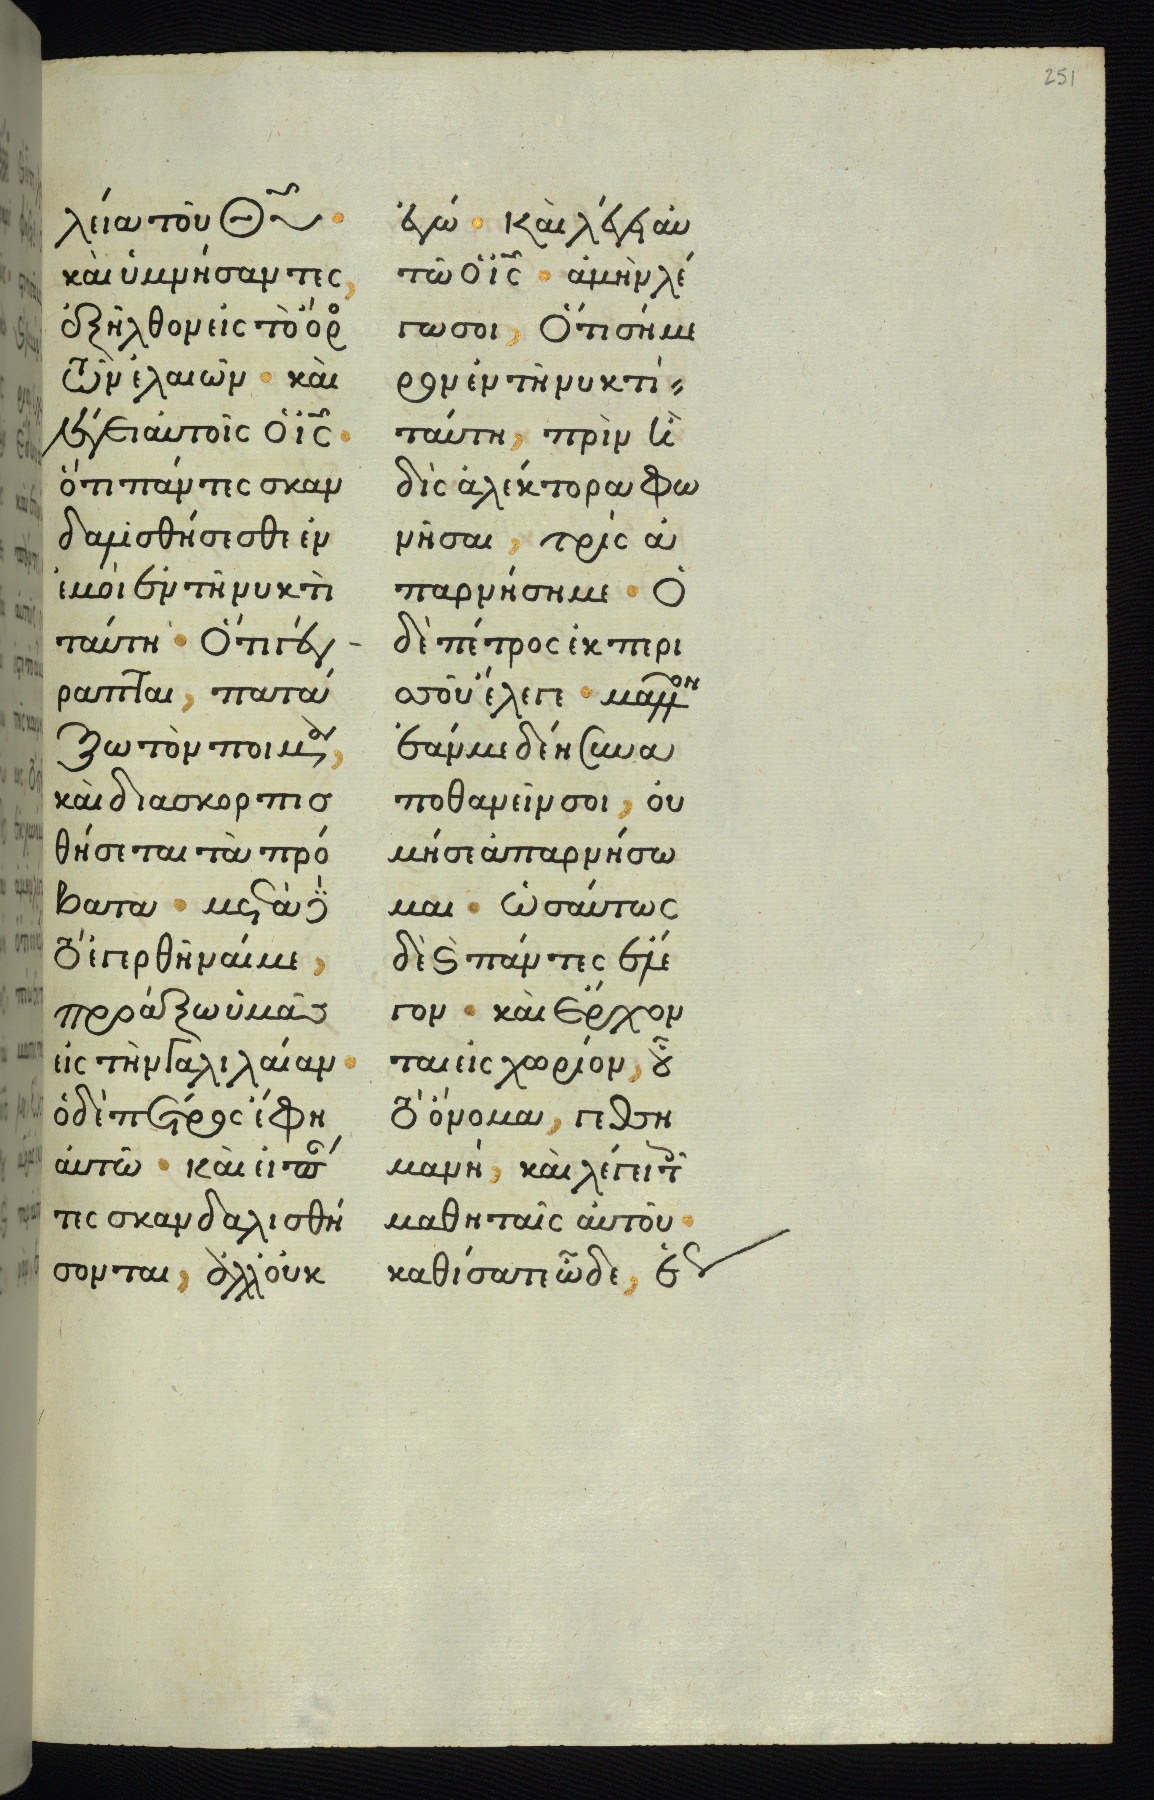 251
λεία τοῦ Θῦ·
καὶ ὑμνήσαντες,
ἐξῆλθον εἰς τὸ ὄρ
τῶν ἐλαιῶν· καὶ
λέγει αὐτοῖς ὁ ἰς·
ὅτι πάντες σκαν
δαλισθήσεσθε ἐν
ἐμοὶ ἐν τῇ νυκτὶ
ταύτῃ· Ὅτι γέγ-
ραπται, πατά
ξω τὸν ποιμέ,
καὶ διασκορπισ
θήσεται τὰ πρό
βατα· μετὰ δὲ
τὸ ἐγερθῆναί με,
προάξω ὑμᾶς
εἰς τὴν Γαλιλαίαν·
ὁ δὲ πέτρος ἔφη
αὐτῶ· καὶ εἰ πάν
τες σκανδαλισθή
σονται, ἀλλ οὐκ
ἐγώ· Καὶ λέγει αὐ
τῶ ὁ ἰς· ἀμὴν λέ
γω σοι, Ὅτι σήμε
ρον ἐν τῇ νυκτὶ
ταύτη, πρὶν ἢ
δὶς ἀλέκτορα φω
νῆσαι, τρὶς ἀ
παρνήση με· Ὁ
δὲ πέτρος ἐκ περι
σσοῦ ἔλεγε· μᾶλλον
ἐάν με δέη συνα
ποθανεῖν σοι, οὐ
μή σε ἀπαρνήσω
μαι· Ὡσαύτως
δὲ καὶ πάντες ἔλε
γον· καὶ Ἔρχον
ται εἰς χωρίον, οὗ
τὸ ὄνομα, γεθση
μανή, καὶ λέγει τοῖ
μαθηταῖς αὐτοῦ·
καθίσατε ὧδε, ἕως